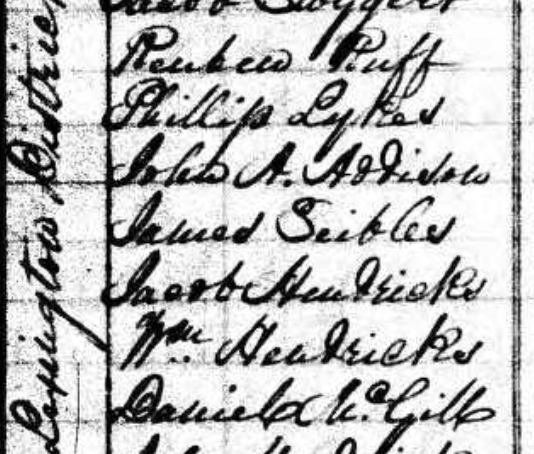 Lexington District
Jacob Swygert
Reuben Ruff
Phillip Lykes
John A. Addison
James Seibles
Jacob Hendricks
Wm. Hendricks
Daniel McGill